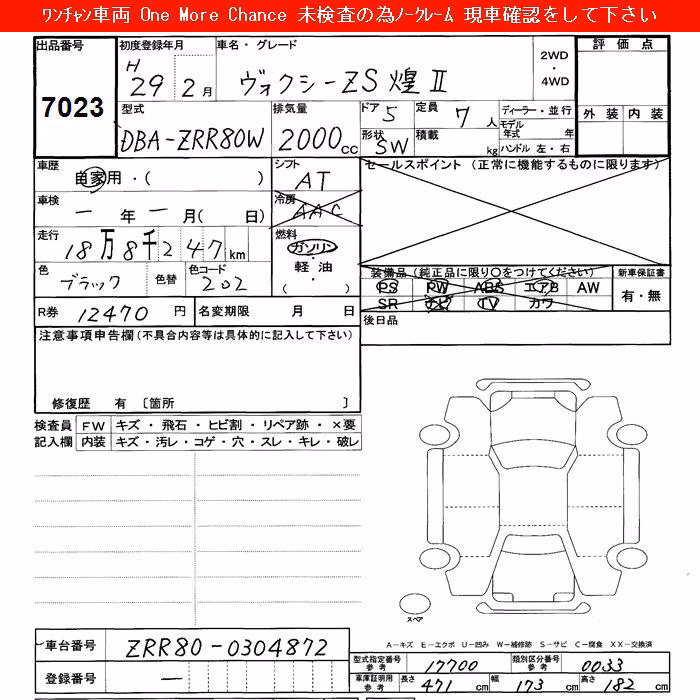 ﾜﾝﾁｬﾝ車両 One More Chance 未検査の為ﾉｰｸﾚｰﾑ 現車確認をして下さい
出品番号 初度登録年月 車名・グレード 評価点
7023 H 29 2月 ヴォクシーZS煌Ⅱ 2WD・4WD
外装 内装
型式 排気量 ドア 5 定員 7人 ディーラー・並行
モデル年式 年
DBA-ZRR80W 2000cc 形状 SW 積載 kg ハンドル 左・右
車歴 自家用・( ) シフト AT セールスポイント (正常に機能するものに限ります)
車検 一年一月( 日) 冷房 AAC
走行 18万8千247km 燃料 ガソリン・軽油・( )
色 ブラック 色替 色コード 202
装備品 (純正品に限り○をつけてください) 新車保証書
PS PW ABS エアB AW 有・無
SR ナビ TV カワ
R券 12470円 名変期限 月 日 後日品
注意事項申告欄(不具合内容等は具体的に記入して下さい)
修復歴 有 〔箇所 〕
検査員記入欄 FW キズ・飛石・ヒビ割・リペア跡・×要
内装 キズ・汚レ・コゲ・穴・スレ・キレ・破レ
スペア
A-キズ E-エクボ U-凹み W-補修跡 S-サビ C-腐食 XX-交換済
車台番号 ZRR80-0304872
登録番号 一
型式指定番号 参考 17700 類別区分番号 参考 0033
車庫証明用 参考 長さ 471cm 幅 173cm 高さ 182cm